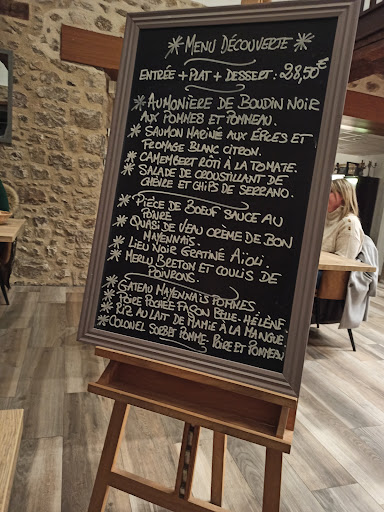 * Menu Découverte *
Entrée + Plat + Dessert : 28,50€
* Aumonière de Boudin Noir
aux Pommes et Pommeau.
* Saumon Mariné aux Épices et
Fromage Blanc Citron.
* Camembert Rôti à la Tomate.
* Salade de Croustillant de
Chèvre et Chips de Serrano.
* Pièce de Boeuf Sauce au
Poivre
* Quasi de Veau Crème de Bon
Mayennais.
* Lieu Noir Gratiné Aïoli.
* Merlu Breton et Coulis de
Poivrons.
* Gateau Mayennais Pommes
* Poire Pochée Façon Belle-Hélène.
* Riz au Lait de Mamie à la Mangue
* Colonel Sorbet Pomme-Poire et Pommeau